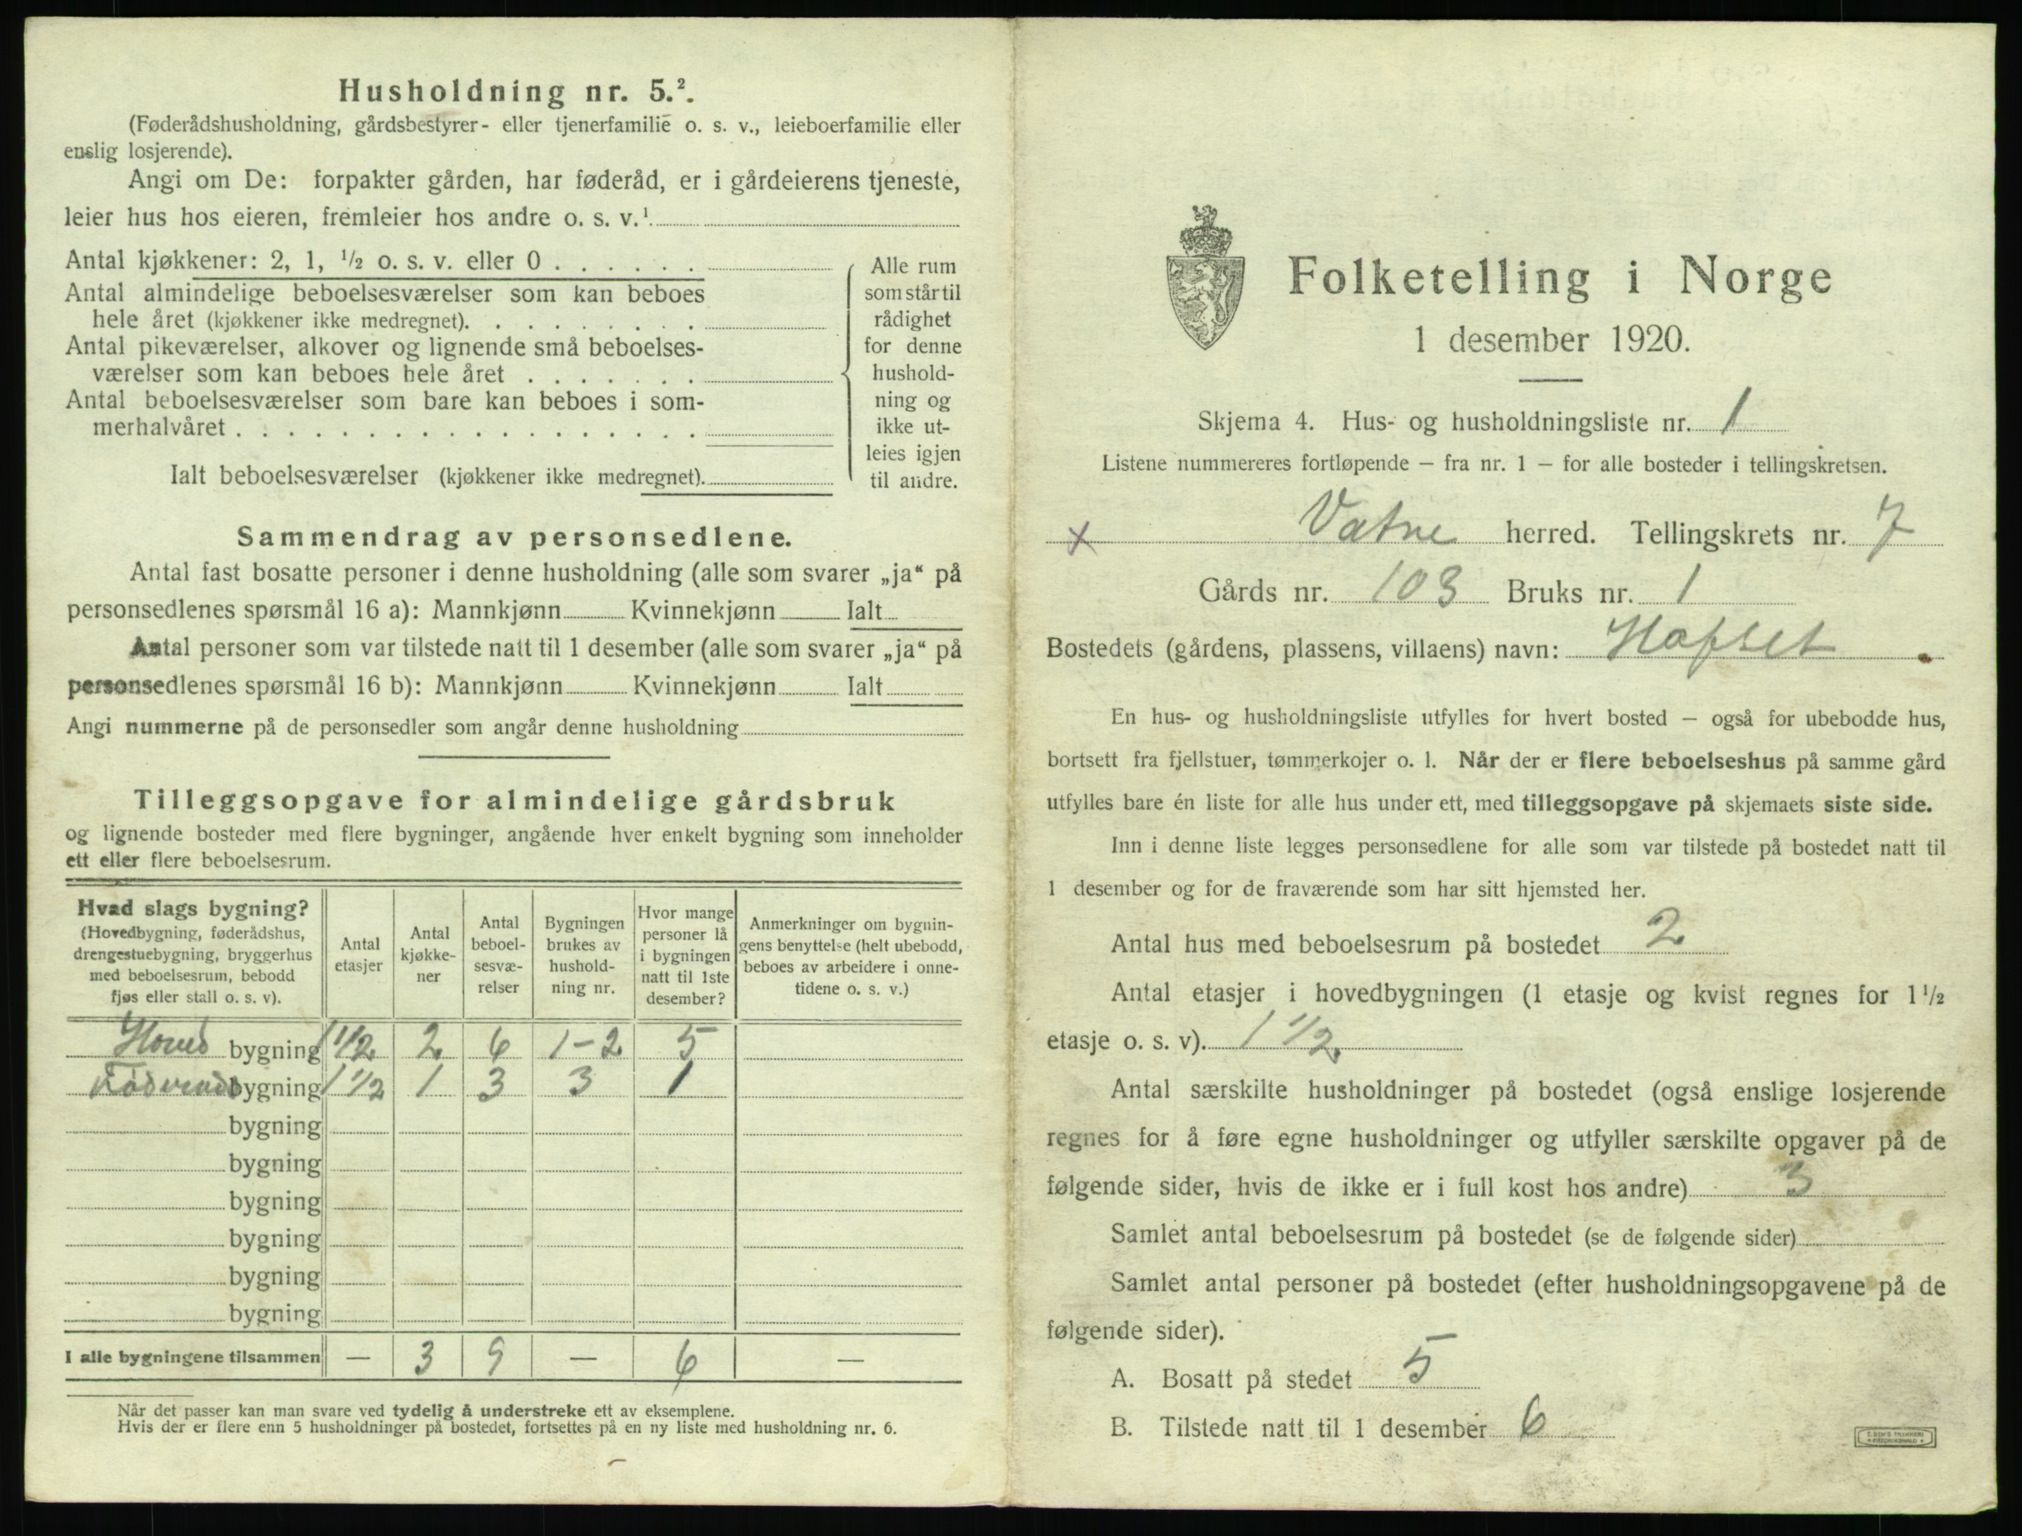 Husholdning nr. 5.².
(Føderådshusholdning, gårdsbestyrer- eller tjenerfamilie o. s. v., leieboerfamilie eller
enslig losjerende).
Angi om De: forpakter gården, har føderåd, er i gårdeierens tjeneste,
leier hus hos eieren, fremleier hos andre o. s. v.¹
Antal kjøkkener: 2, 1, ½ o. s. v. eller 0
Antal almindelige beboelsesværelser som kan beboes
hele året (kjøkkener ikke medregnet).
Antal pikeværelser, alkover og lignende små beboelses-
værelser som kan beboes hele året
Antal beboelsesværelser som bare kan beboes i som-
merhalvåret
Ialt beboelsesværelser (kjøkkener ikke medregnet).
Alle rum
som står til
rådighet
for denne
hushold-
ning og
ikke ut-
leies igjen
til andre.
Sammendrag av personsedlene.
Antal fast bosatte personer i denne husholdning (alle som svarer „ja“ på
personsedlenes spørsmål 16 a): Mannkjønn Kvinnekjønn Ialt
Antal personer som var tilstede natt til 1 desember (alle som svarer „ja“ på
personsedlenes spørsmål 16 b): Mannkjønn Kvinnekjønn Ialt
Angi nummerne på de personsedler som angår denne husholdning
Tilleggsopgave for almindelige gårdsbruk
og lignende bosteder med flere bygninger, angående hver enkelt bygning som inneholder
ett eller flere beboelsesrum.
Hvad slags bygning?
(Hovedbygning, føderådshus,
drengestuebygning, bryggerhus
med beboelsesrum, bebodd
fjøs eller stall o. s. v).
Antal
etasjer
Antal
kjøkke-
ner
Antal
beboel-
sesvæ-
relser
Bygningen
brukes av
hushold-
ning nr.
Hvor mange
personer lå
i bygningen
natt til 1ste
desember?
Anmerkninger om bygnin-
gens benyttelse (helt ubebodd,
beboes av arbeidere i onne-
tidene o. s. v.)
Hoved bygning 1 1/2 2 6 1-2 5
bygning 1 1/2 1 3 3 1
bygning
bygning
bygning
bygning
bygning
bygning
I alle bygningene tilsammen — 3 9 — 6 —
Når det passer kan man svare ved tydelig å understreke ett av eksemplene.
Hvis der er flere enn 5 husholdninger på bostedet, fortsettes på en ny liste med husholdning nr. 6.
Folketelling i Norge
1 desember 1920.
Skjema 4. Hus- og husholdningsliste nr. 1
Listene nummereres fortløpende – fra nr. 1 – for alle bosteder i tellingskretsen.
x Vatne herred. Tellingskrets nr. 7
Gårds nr. 103 Bruks nr. 1
Bostedets (gårdens, plassens, villaens) navn: Hofset
En hus- og husholdningsliste utfylles for hvert bosted – også for ubebodde hus,
bortsett fra fjellstuer, tømmerkojer o. l. Når der er flere beboelseshus på samme gård
utfylles bare én liste for alle hus under ett, med tilleggsopgave på skjemaets siste side.
Inn i denne liste legges personsedlene for alle som var tilstede på bostedet natt til
1 desember og for de fraværende som har sitt hjemsted her.
Antal hus med beboelsesrum på bostedet 2
Antal etasjer i hovedbygningen (1 etasje og kvist regnes for 1½
etasje o. s. v). 1 1/2
Antal særskilte husholdninger på bostedet (også enslige losjerende
regnes for å føre egne husholdninger og utfyller særskilte opgaver på de
følgende sider, hvis de ikke er i full kost hos andre) 3
Samlet antal beboelsesrum på bostedet (se de følgende sider)
Samlet antal personer på bostedet (efter husholdningsopgavene på de
følgende sider).
A. Bosatt på stedet 5
B. Tilstede natt til 1 desember 6